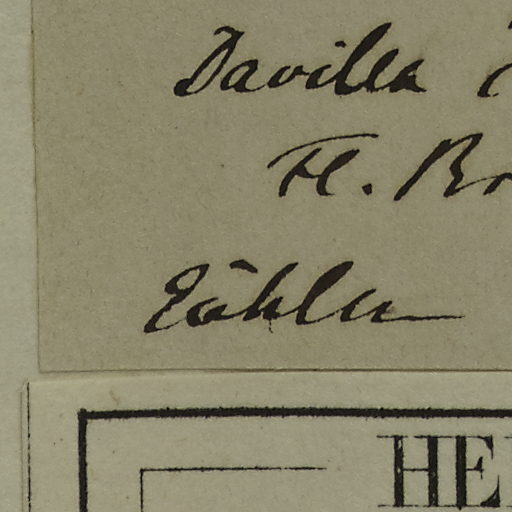 Davilla
Fl. Br
Köhler
HE